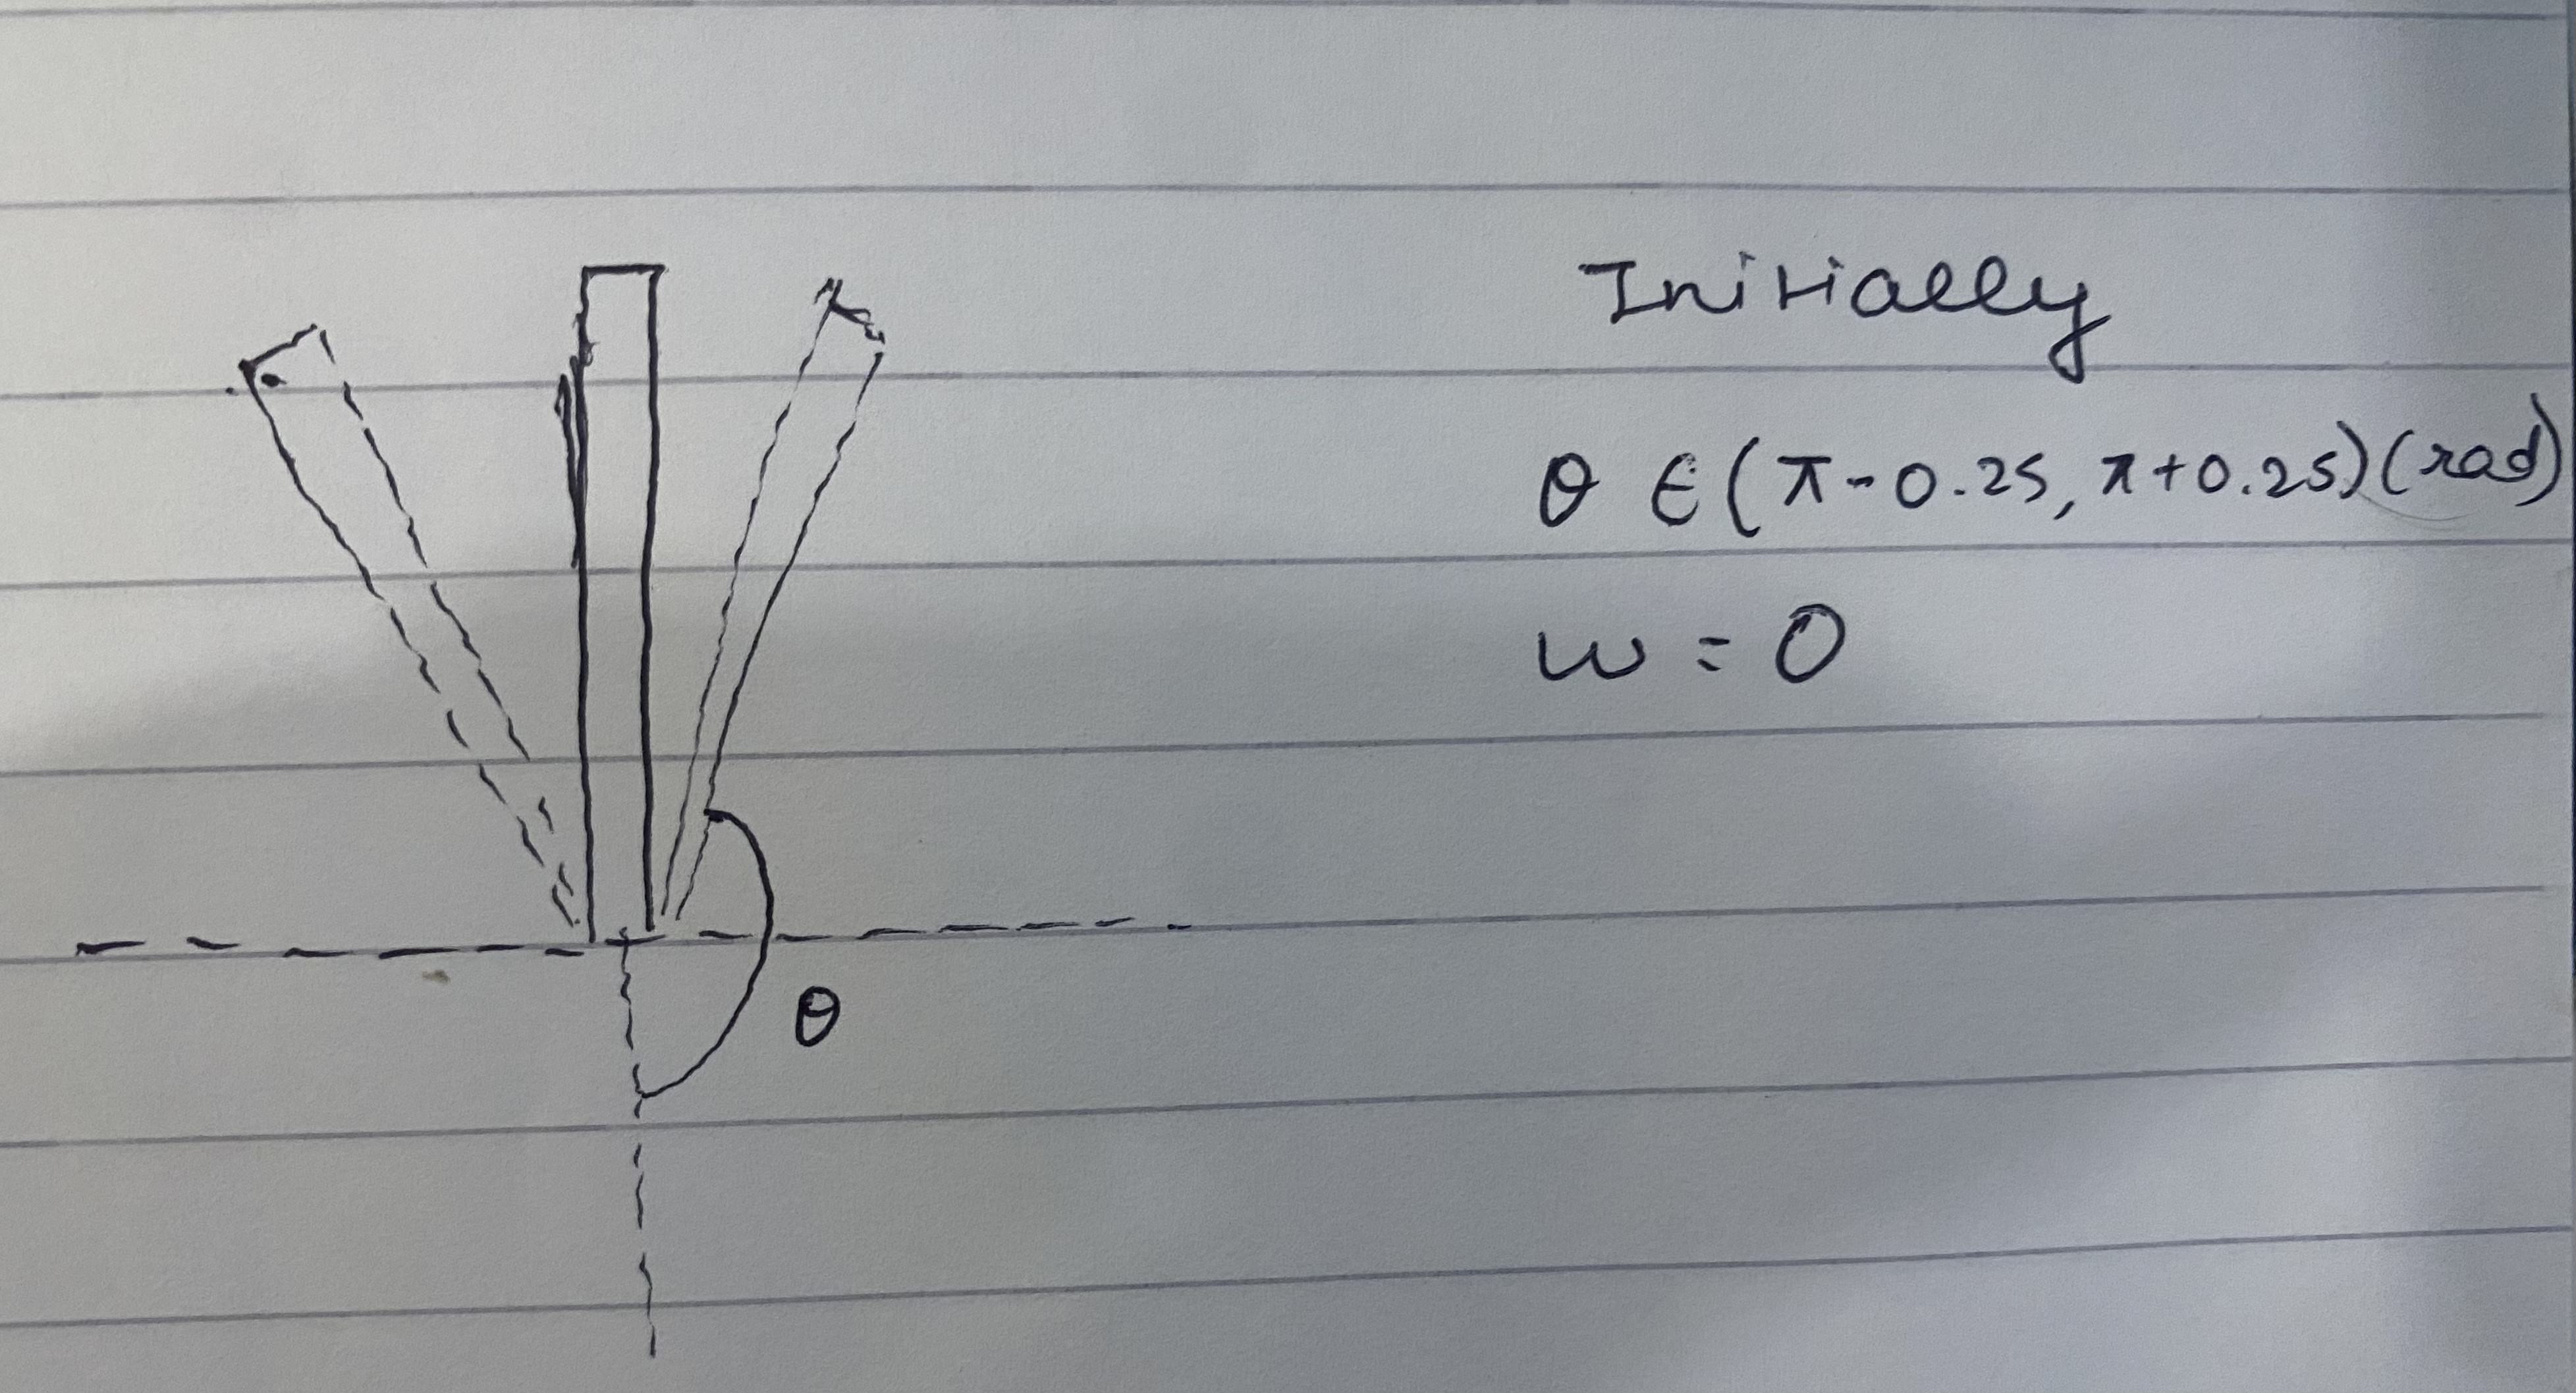 Initially
θ ∈ (π - 0.25, π + 0.25) (rad)
w = 0
θ